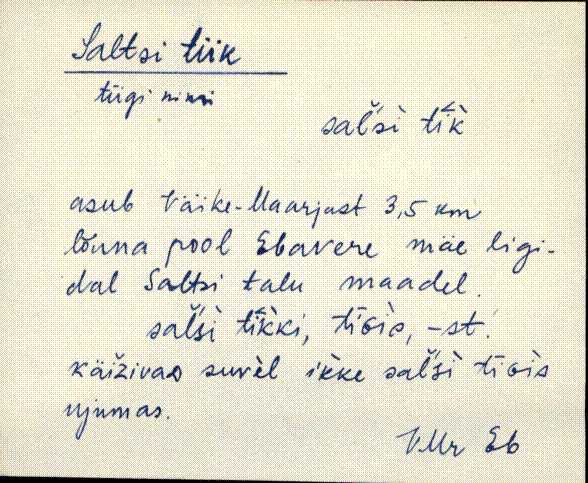 Saltsi tiik
tiigi nimi
sal'sì tīk̀
asub Väike-Maarjast 3,5 km
lõuna pool Ebavere mäe ligi-
dal Saltsi talu maadel.
sal'sì tīk̀ki, tīɢìs, -st.
käiživaᴅ suvèl ik̀ke sal'sì tīɢìs
ujumas.
VMr Eb